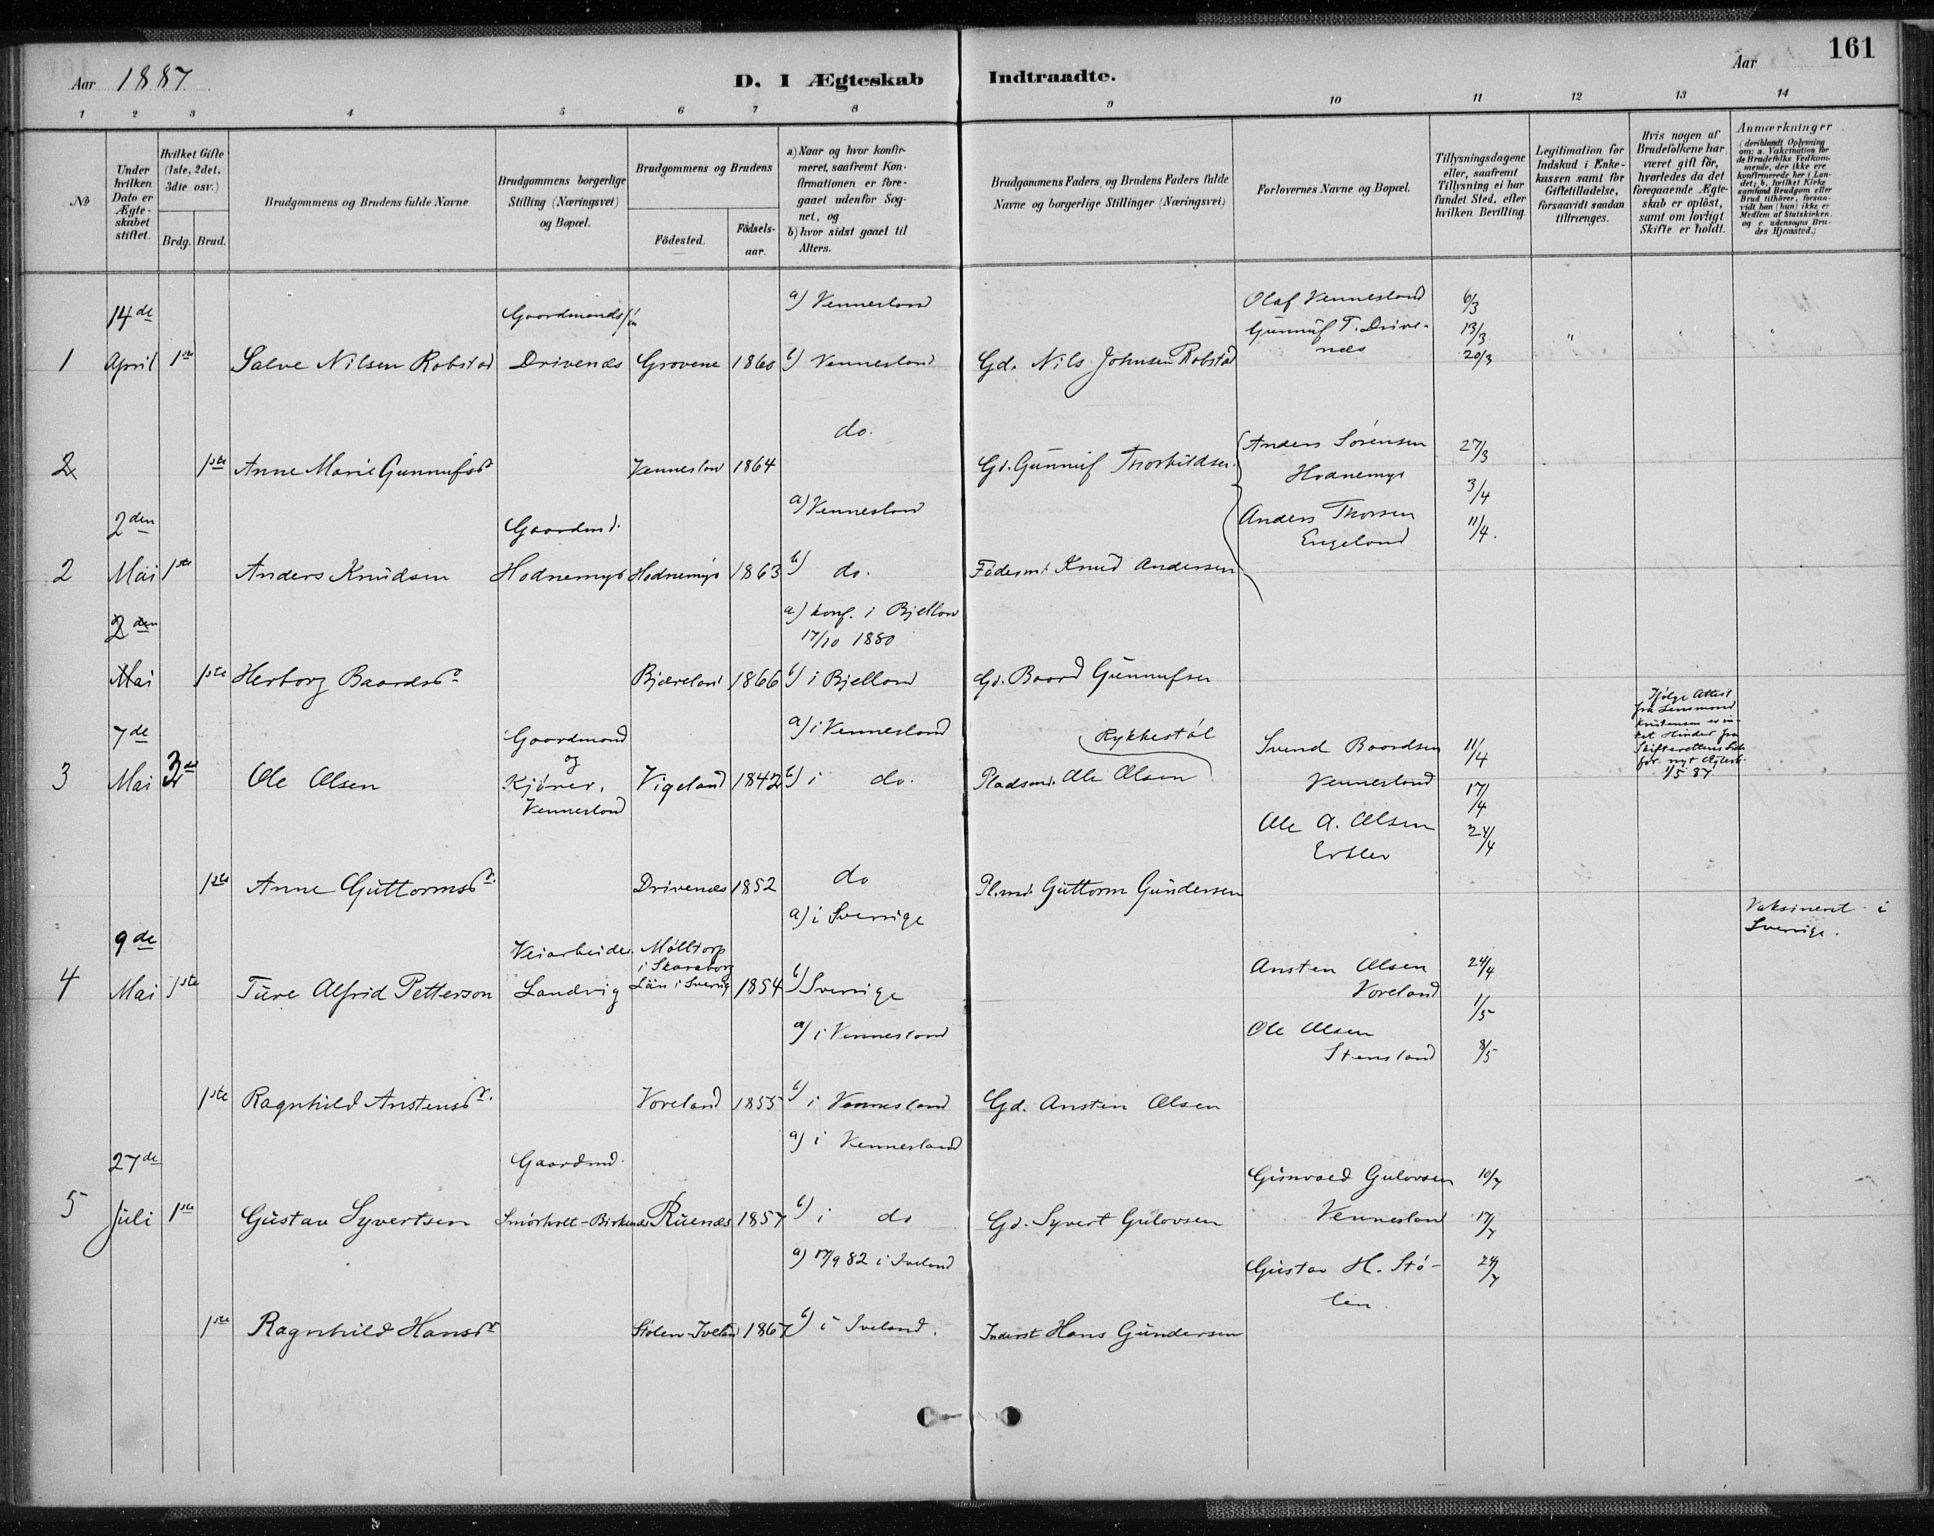 161
Aar 1887
D. I Ægteskab Indtraadte.
Aar
1 2 3 4 5 6 7 8 9 10 11 12 13 14
No
Under hvilken Dato er Ægteskabet stiftet.
Hvilket Gifte (1ste, 2det, 3die osv.)
Brdg. Brud.
Brudgommens og Brudens fulde Navne
Brudgommens borgerlige Stilling (Næringsvei) og Bopæl.
Brudgommens og Brudens
Fødested.
Fødsels-aar.
a) Naar og hvor konfirmeret, saafremt Konfirmationen er foregaaet udenfor Sognet, og
b) hvor sidst gaaet til Alters.
Brudgommens Faders og Brudens Faders fulde Navne og borgerlige Stillinger (Næringsvei)
Forlovernes Navne og Bopæl.
Tillysningsdagene eller, saafremt Tillysning ei har fundet Sted, efter hvilken Bevilling.
Legitimation for Indskud i Enkekassen samt for Giftetilladelse, forsaavidt saadan tiltrænges.
Hvis nogen af Brudefolkene har været gift før, hvorledes da det foregaaende Ægteskab er opløst, samt om lovligt Skifte er holdt.
Anmærkninger (deriblandt Oplysning om: a. Vakcination for de Brudefolks Vedkommende, der ikke ere konfirmerede her i Landet; b. hvilket Kirkesamfund Brudgom eller Brud tilhører, forsaavidt han (hun) ikke er Medlem af Statskirken, og c. udensogns Brudes Hjemsted.)
14de Gaardmands a) Vennesland Olaf Vennesland 6/3
Gunnuf T. Drive- 13/3
næs 20/3
1 April 1ste Salve Nilsen Robstad Drivenæs Grovene 1860 b) Vennesland Gd. Nils Johnsen Robstad "
do. Anders Sørensen 27/3
2 1ste Anne Marie Gunnufsdr Vennesland 1864 Gd. Gunnuf Thorkildsen Hodnemyr 3/4
2den Gaardmd. a) Vennesland Anders Thorsen 11/4.
Engeland
2 Mai 1ste Anders Knudsen Hodnemyr Hodnemyr 1863 b) do. Födermd. Knud Andersen
2den a) konf. i Bjelland
17/10 1880
Mai 1ste Herborg Baardsdr Bjæreland 1866 b) i Bjelland Gd. Baard Gunnufsen
7de Gaardmand a) i Vennesland Rykkestøl Svend Baardsen 11/4
3 Mai 3die Ole Olsen og Kjörer, Vennesland Vigeland 1842 b) i do. Pladsmd. Ole Olsen Vennesland 17/4
Ifølge Attest fra Lensmand Kristensen er intet Hinder fra Skifterettens Side for nyt Ægtesk. 1/5 87
Ole A. Olsen 24/4
1ste Anne Guttormsdr. Drivenæs 1852 do Pl.md. Guttorm Gundersen
a) i Sverrige Vaksineret i Sverrige.
9de Veiarbeider Mölltorp i Skaraborg Län i Sverrig Ansten Olsen 24/4
4 Mai 1ste Ture Alfrid Petterson Landvig 1854 b) Sverrige Voreland 1/5
a) i Vennesland Ole Olsen
Stensland 8/5
1ste Ragnhild Anstensdr. Voreland 1855 b) i Vennesland Gd. Ansten Olsen
27de Gaardmd. a) i Vennesland Gunvald Gulovsen 10/7
5 Juli 1ste Gustav Syvertsen Smörholt-Birkenæs Ruenæs 1857 b) i do Gd. Syvert Gulovsen Vennesland 17/7
a) 17/9 82 i Iveland Gustav H. Stø- 24/7
len.
1ste Ragnhild Hansdr Stölen-Iveland 1867 b) i Iveland. Inderst Hans Gundersen